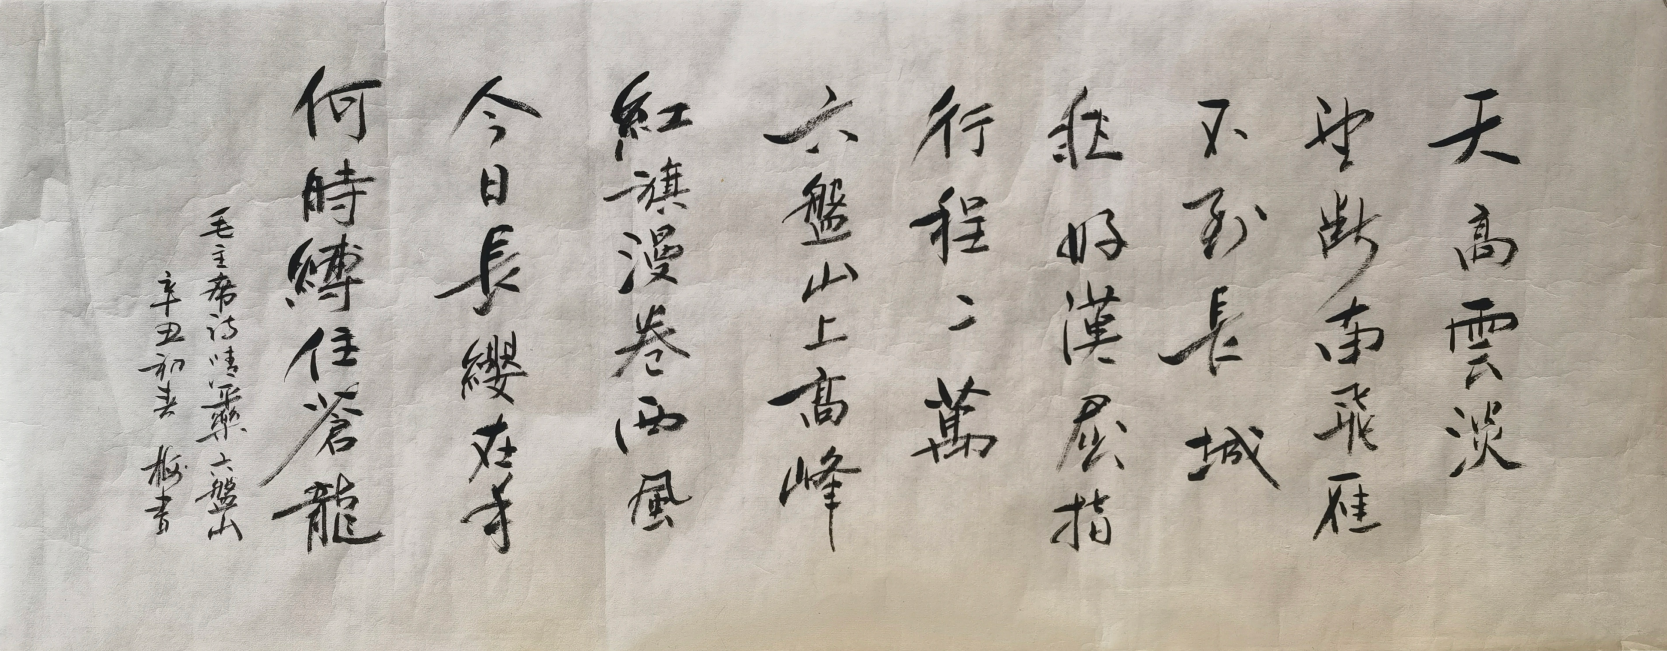 天高雲淡
望斷南飛雁
不到長城
非好漢屈指
行程二萬
六盤山上高峰
紅旗漫卷西風
今日長纓在手
何時縛住蒼龍
毛主席詩清平樂六盤山
辛丑初春 梅書